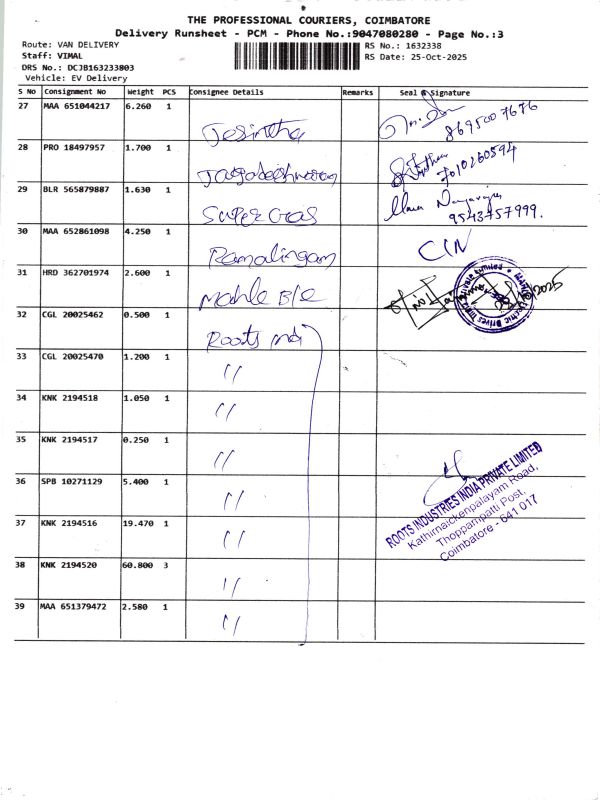 THE PROFESSIONAL COURIERS, COIMBATORE
Delivery Runsheet - PCM - Phone No.:9047080280 - Page No.:3
Route: VAN DELIVERY RS No.: 1632338
Staff: VIMAL RS Date: 25-Oct-2025
DRS No.: DCJB163233803
Vehicle: EV Delivery
S No Consignment No Weight PCS Consignee Details Remarks Seal & Signature
27 MAA 651044217 6.260 1 Jesintha 8695007676
28 PRO 18497957 1.700 1 7010260594
29 BLR 565879887 1.630 1 Super Gas 9543757999.
30 MAA 652861098 4.250 1 Ramalingam CIN
31 HRD 362701974 2.600 1 Mahle B/E
32 CGL 20025462 0.500 1 Roots ind
33 CGL 20025470 1.200 1 "
34 KNK 2194518 1.050 1 "
35 KNK 2194517 0.250 1 "
36 SPB 10271129 5.400 1 "
37 KNK 2194516 19.470 1 "
38 KNK 2194520 60.800 3 "
39 MAA 651379472 2.580 1 "
ROOTS INDUSTRIES INDIA PRIVATE LIMITED
Kathirnaickenpalayam Road,
Thoppampatti Post,
Coimbatore - 641 017